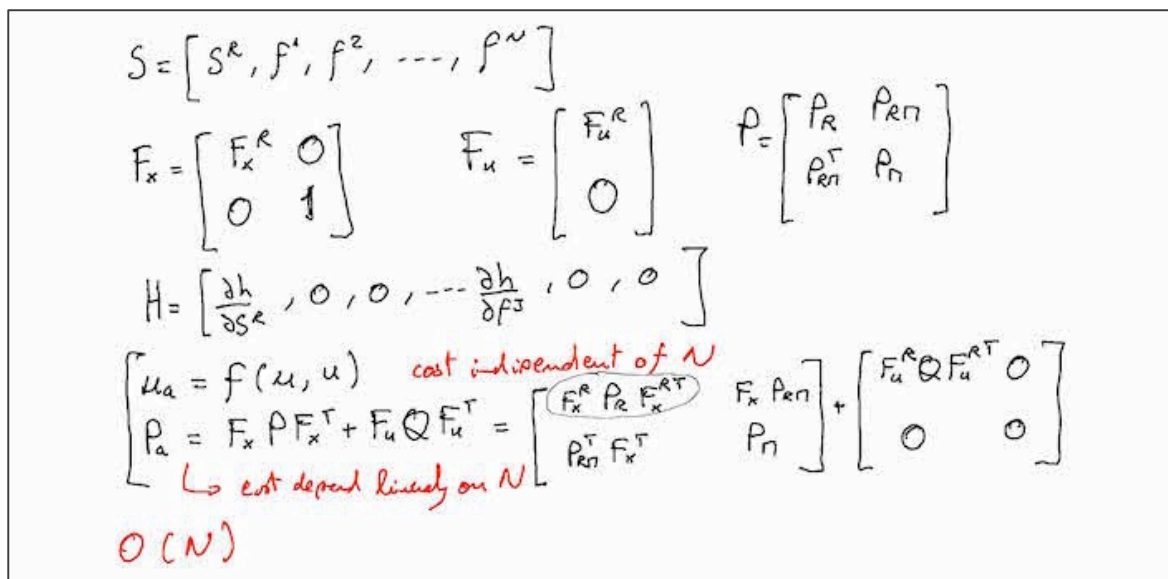 S = [ S^R, f^1, f^2, ----, f^N ]
F_x = [ F_x^R 0 ; 0 1 ] F_u = [ F_u^R ; 0 ] P = [ P_R P_RM ; P_RM^T P_M ]
H = [ ∂h/∂S^R , 0 , 0 , --- ∂h/∂f^J , 0 , 0 ]
μ_a = f(μ, u) cost indipendent of N
P_a = F_x P F_x^T + F_u Q F_u^T = [ F_x^R P_R F_x^RT F_x P_RM ; P_RM^T F_x^T P_M ] + [ F_u^R Q F_u^RT 0 ; 0 0 ]
↳ cost depend linearly on N
O (N)